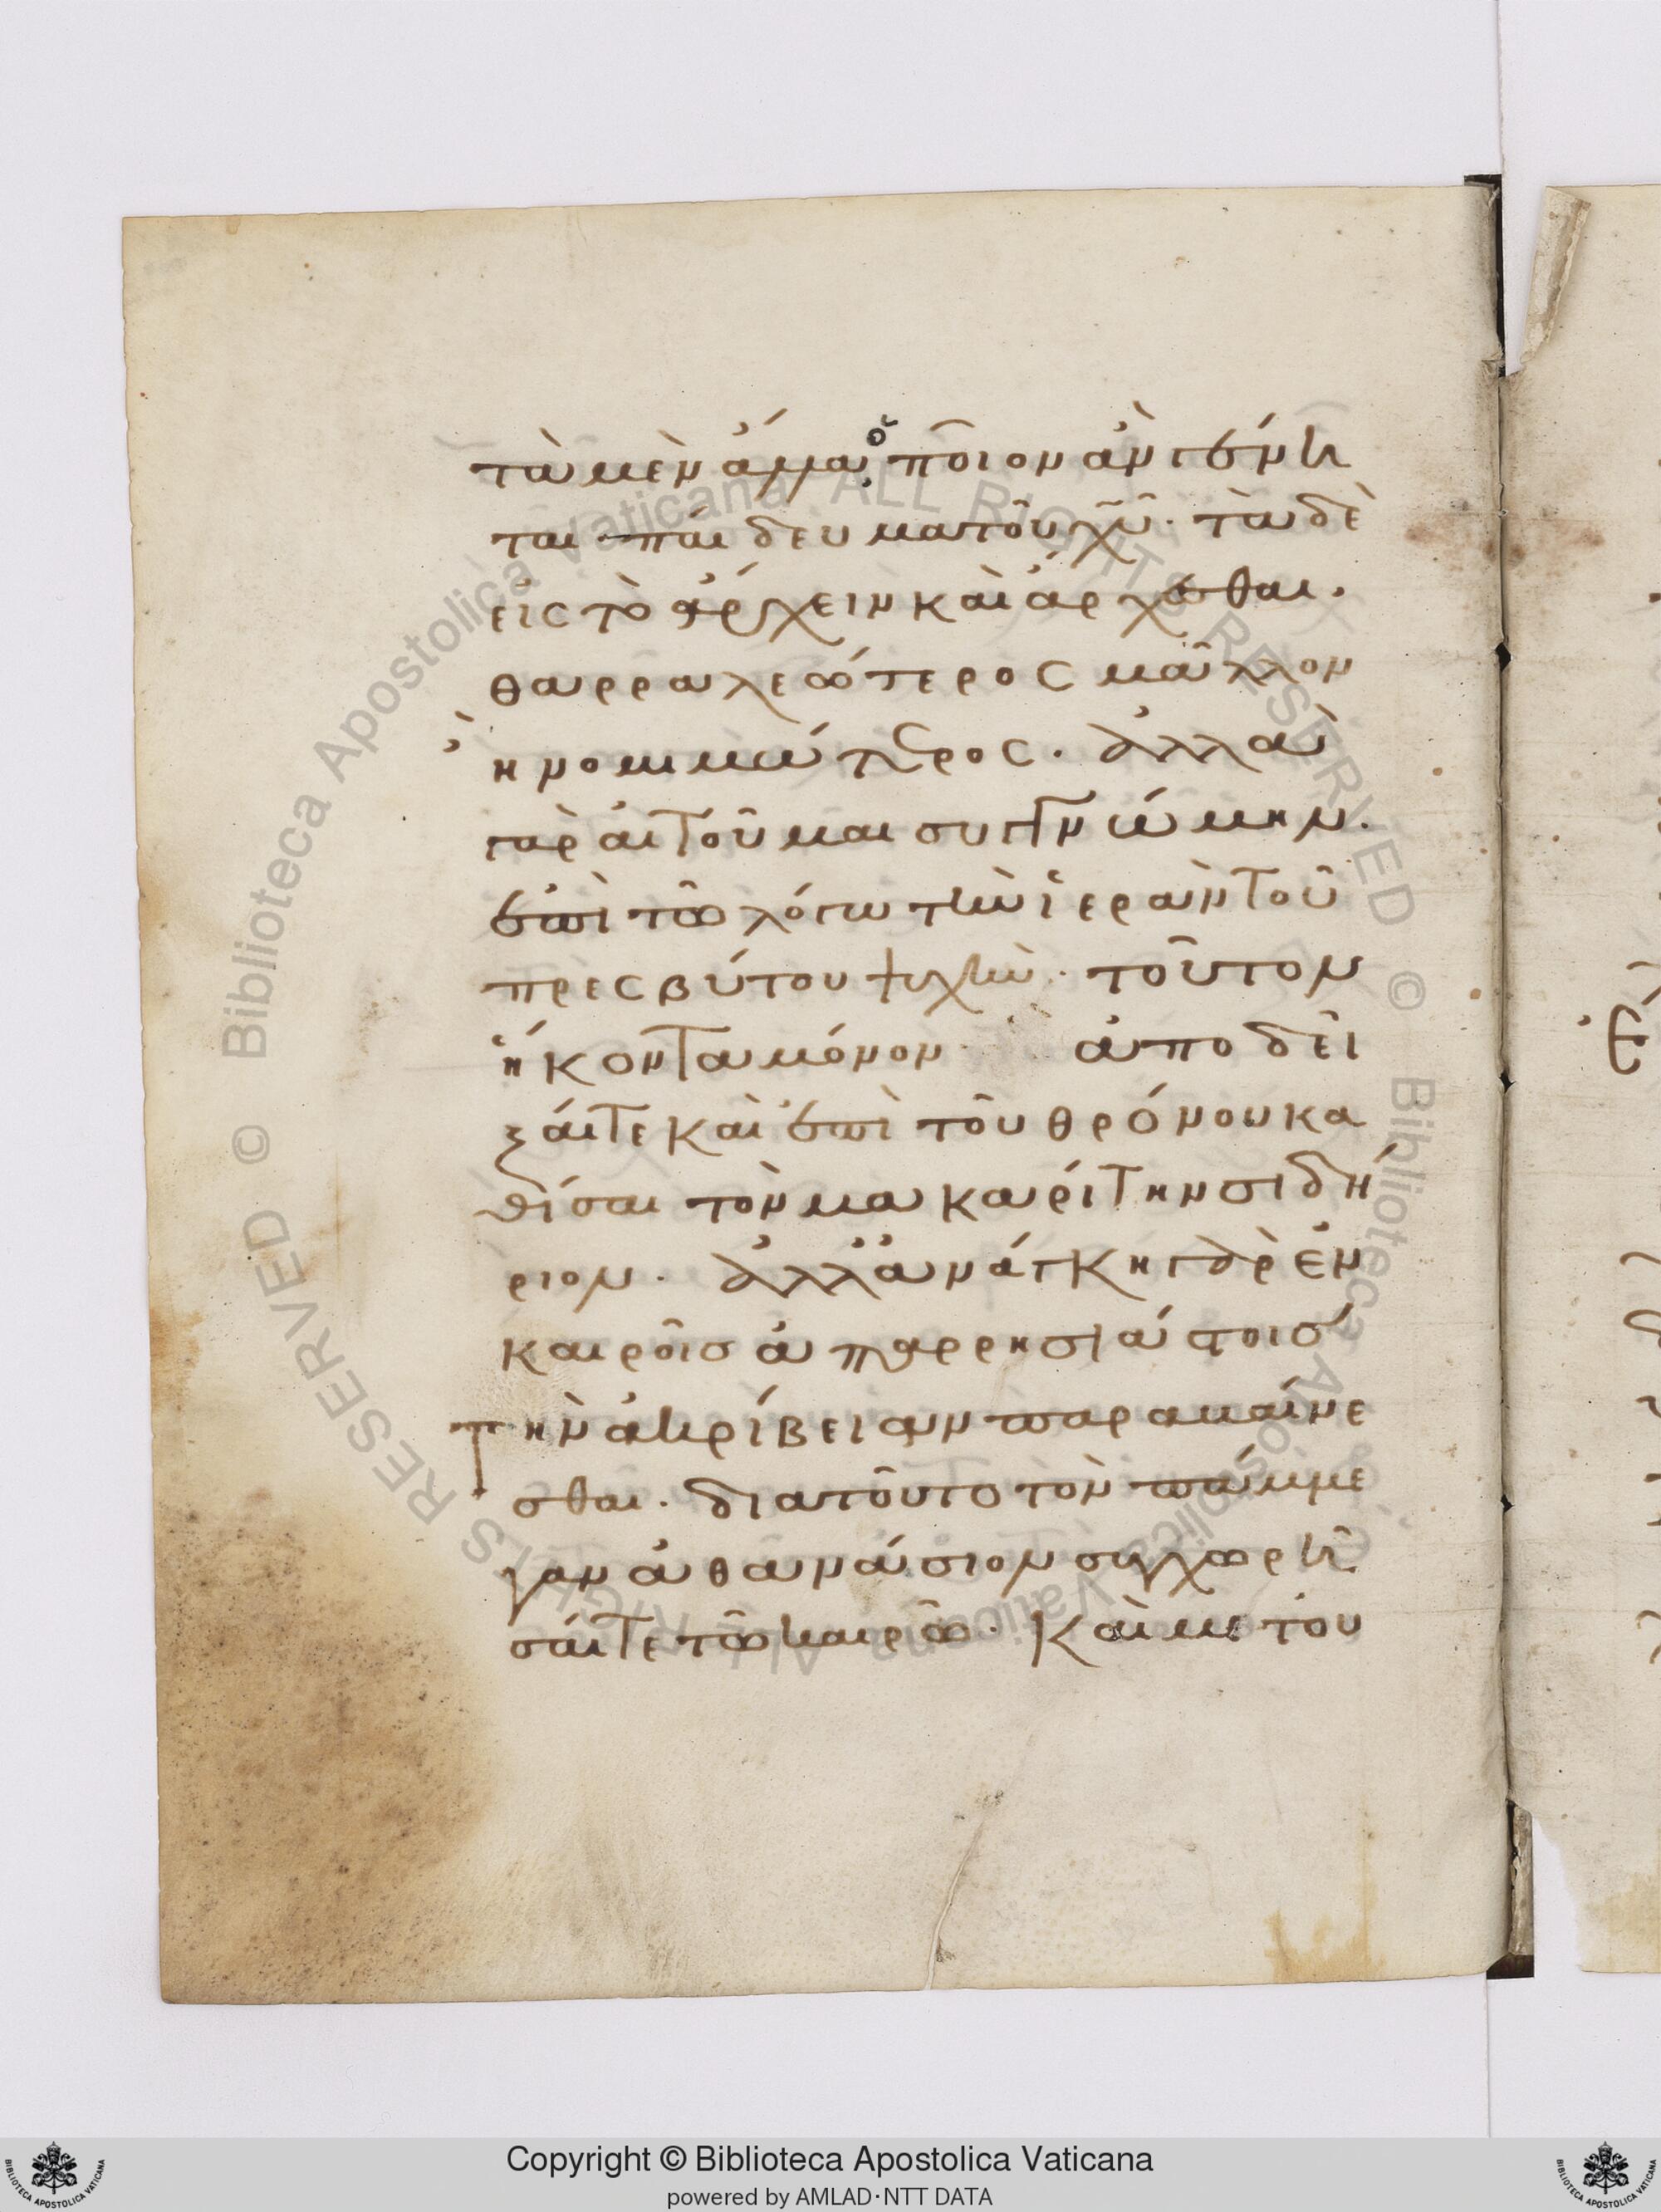 τὰ μὲν ἄλλα ὁποῖον ἂν γένη
ται παίδευμα τοῦ χῦ· τὰ δὲ
εἰς τὸ ἄρχειν καὶ ἄρχεσθαι.
θαρραλεώτερος μᾶλλον
ἢ νομιμώτερος. ἀλλὰ
γὰρ αἰτοῦμαι συγγνώμην.
ἐπὶ τῶ λόγω τὴν ἱερὰν τοῦ
πρεσβύτου ψυχὴν· τοῦτον
ἥκοντα μόνον ἀποδεί
ξαιτε καὶ ἐπὶ τοῦ θρόνου κα
θίσαι τὸν μακαρίτην σιδή
ριον. ἀλλ' ἀνάγκη γὰρ ἐν
καιροῖς ἀπαρρησιάστοις
τὴν ἀκρίβειαν παρακαίνε
σθαι. διατοῦτο τὸν πάμμε
γαν ἀθανάσιον συγχωρή
σαιτε τῶ καιρῶ. καὶ με τοῦ
Copyright © Biblioteca Apostolica Vaticana
powered by AMLAD·NTT DATA